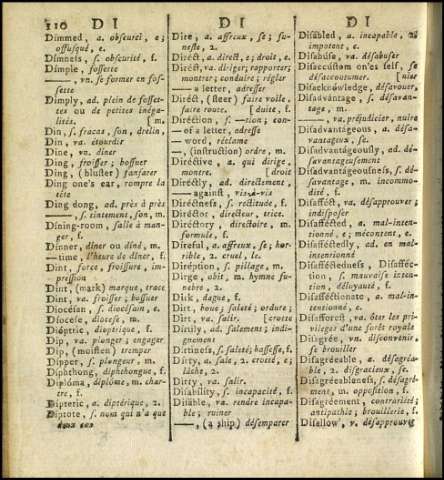 110 D I
Dimmed, a. obscurci, e;
offusqué, e.
Dimness, s. obscurité, f.
Dimple, fossette
—, vn. se former en fos-
sette
Dimply, ad. plein de fosset-
tes ou de petites inéga-
lités. [m.
Din, s. fracas, son, drelin,
Din, va. étourdir
Dine, vn. dîner
Ding, froisser; bossuer
Ding, (bluster) fanfarer
Ding one's ear, rompre la
tête
Ding dong, ad. près à près
—, s. tintement, son, m.
Dining-room, salle à man-
ger, f.
Dinner, dîner ou dîné, m.
—time, l'heure de dîner, f.
Dint, force, froissure, im-
pression
Dint, (mark) marque, trace
Dint, va. froisser, bossuer
Diocesan, s. diocésain, e.
Diocese, diocese, m.
Dióptric, dioptrique, f.
Dip, va. plonger; engager
Dip, (moisten) tremper
Dipper, s. plongeur, m.
Diphthong, diphthongue, f.
Diplóma, diplóme, m. char-
tre, f.
Dipteric, a. diptérique, 2.
Diptote, s. nom qui n'a que
deux cas
D I
Dire, a. affreux, se; fu-
neste, 2.
Diréct, a. direct, e; droit, e.
Diréct, va. diriger; rapporter;
montrer; conduire; régler
—a letter, adresser
Diréct, (steer) faire voile,
faire route. [duite, f.
Diréction, s. —tion; con-
—of a letter, adresse
—word, réclame
—, (instruction) ordre, m.
Diréctive, a. qui dirige,
montre. [droit
Diréctly, ad. directement,
—against, vis-à-vis
Diréctness, s. rectitude, f.
Diréctor, directeur, trice.
Diréctory, directoire, m.
formule, f.
Direful, a. affreux, se; hor-
rible, 2. cruel, le.
Diréption, s. pillage, m.
Dirge, obit, m. hymne fu-
nebre, 2.
Dirk, dague, f.
Dirt, boue; saleté; ordure;
Dirt, va. salir. [crotte
Dirtily, ad. salement; indi-
gnement
Dirtiness, s. saleté; bassesse, f.
Dirty, a. sale, 2. crotté, e;
lâche, 2.
Dirty, va. salir.
Disability, s. incapacité, f.
Disable, va. rendre incapa-
ble; ruiner
—, (a ship) désemparer
D I
Disabled, a. incapable,
impotent, e.
Disabuse, va. désabuser
Disaccustom on'es self, se
désaccoutumer. [nier
Disacknowledge, désavouer,
Disadvantage, s. désavan-
tage, m.
—, va. préjudicier, nuire
Disadvantageous, a. désa-
vantageux, se.
Disadvantageously, ad. dé-
savantageusement
Disadvantageousness, s. dé-
savantage, m. incommo-
dité, f.
Disafféct, va. désapprouver;
indisposer
Disafféctéd, a. mal-inten-
tionné, e; mécontent, e.
Disafféctedly, ad. en mal-
intentionné
Disafféctedness, Disafféc-
tion, s. mauvaise inten-
tion, déloyauté, f.
Disafféctionate, a. mal-in-
tentionné, e.
Disafforest, va. ôter les pri-
vileges d'une forêt royale
Disagrée, vn. disconvenir,
se brouiller
Disagréeable, a. désagréa-
ble, 2. disgracieux, se.
Disagréeableness, s. désagré-
ment, m. opposition, f.
Disagréement, contrariété;
antipathie; brouillerie, f.
Disallow, v. désapprouver